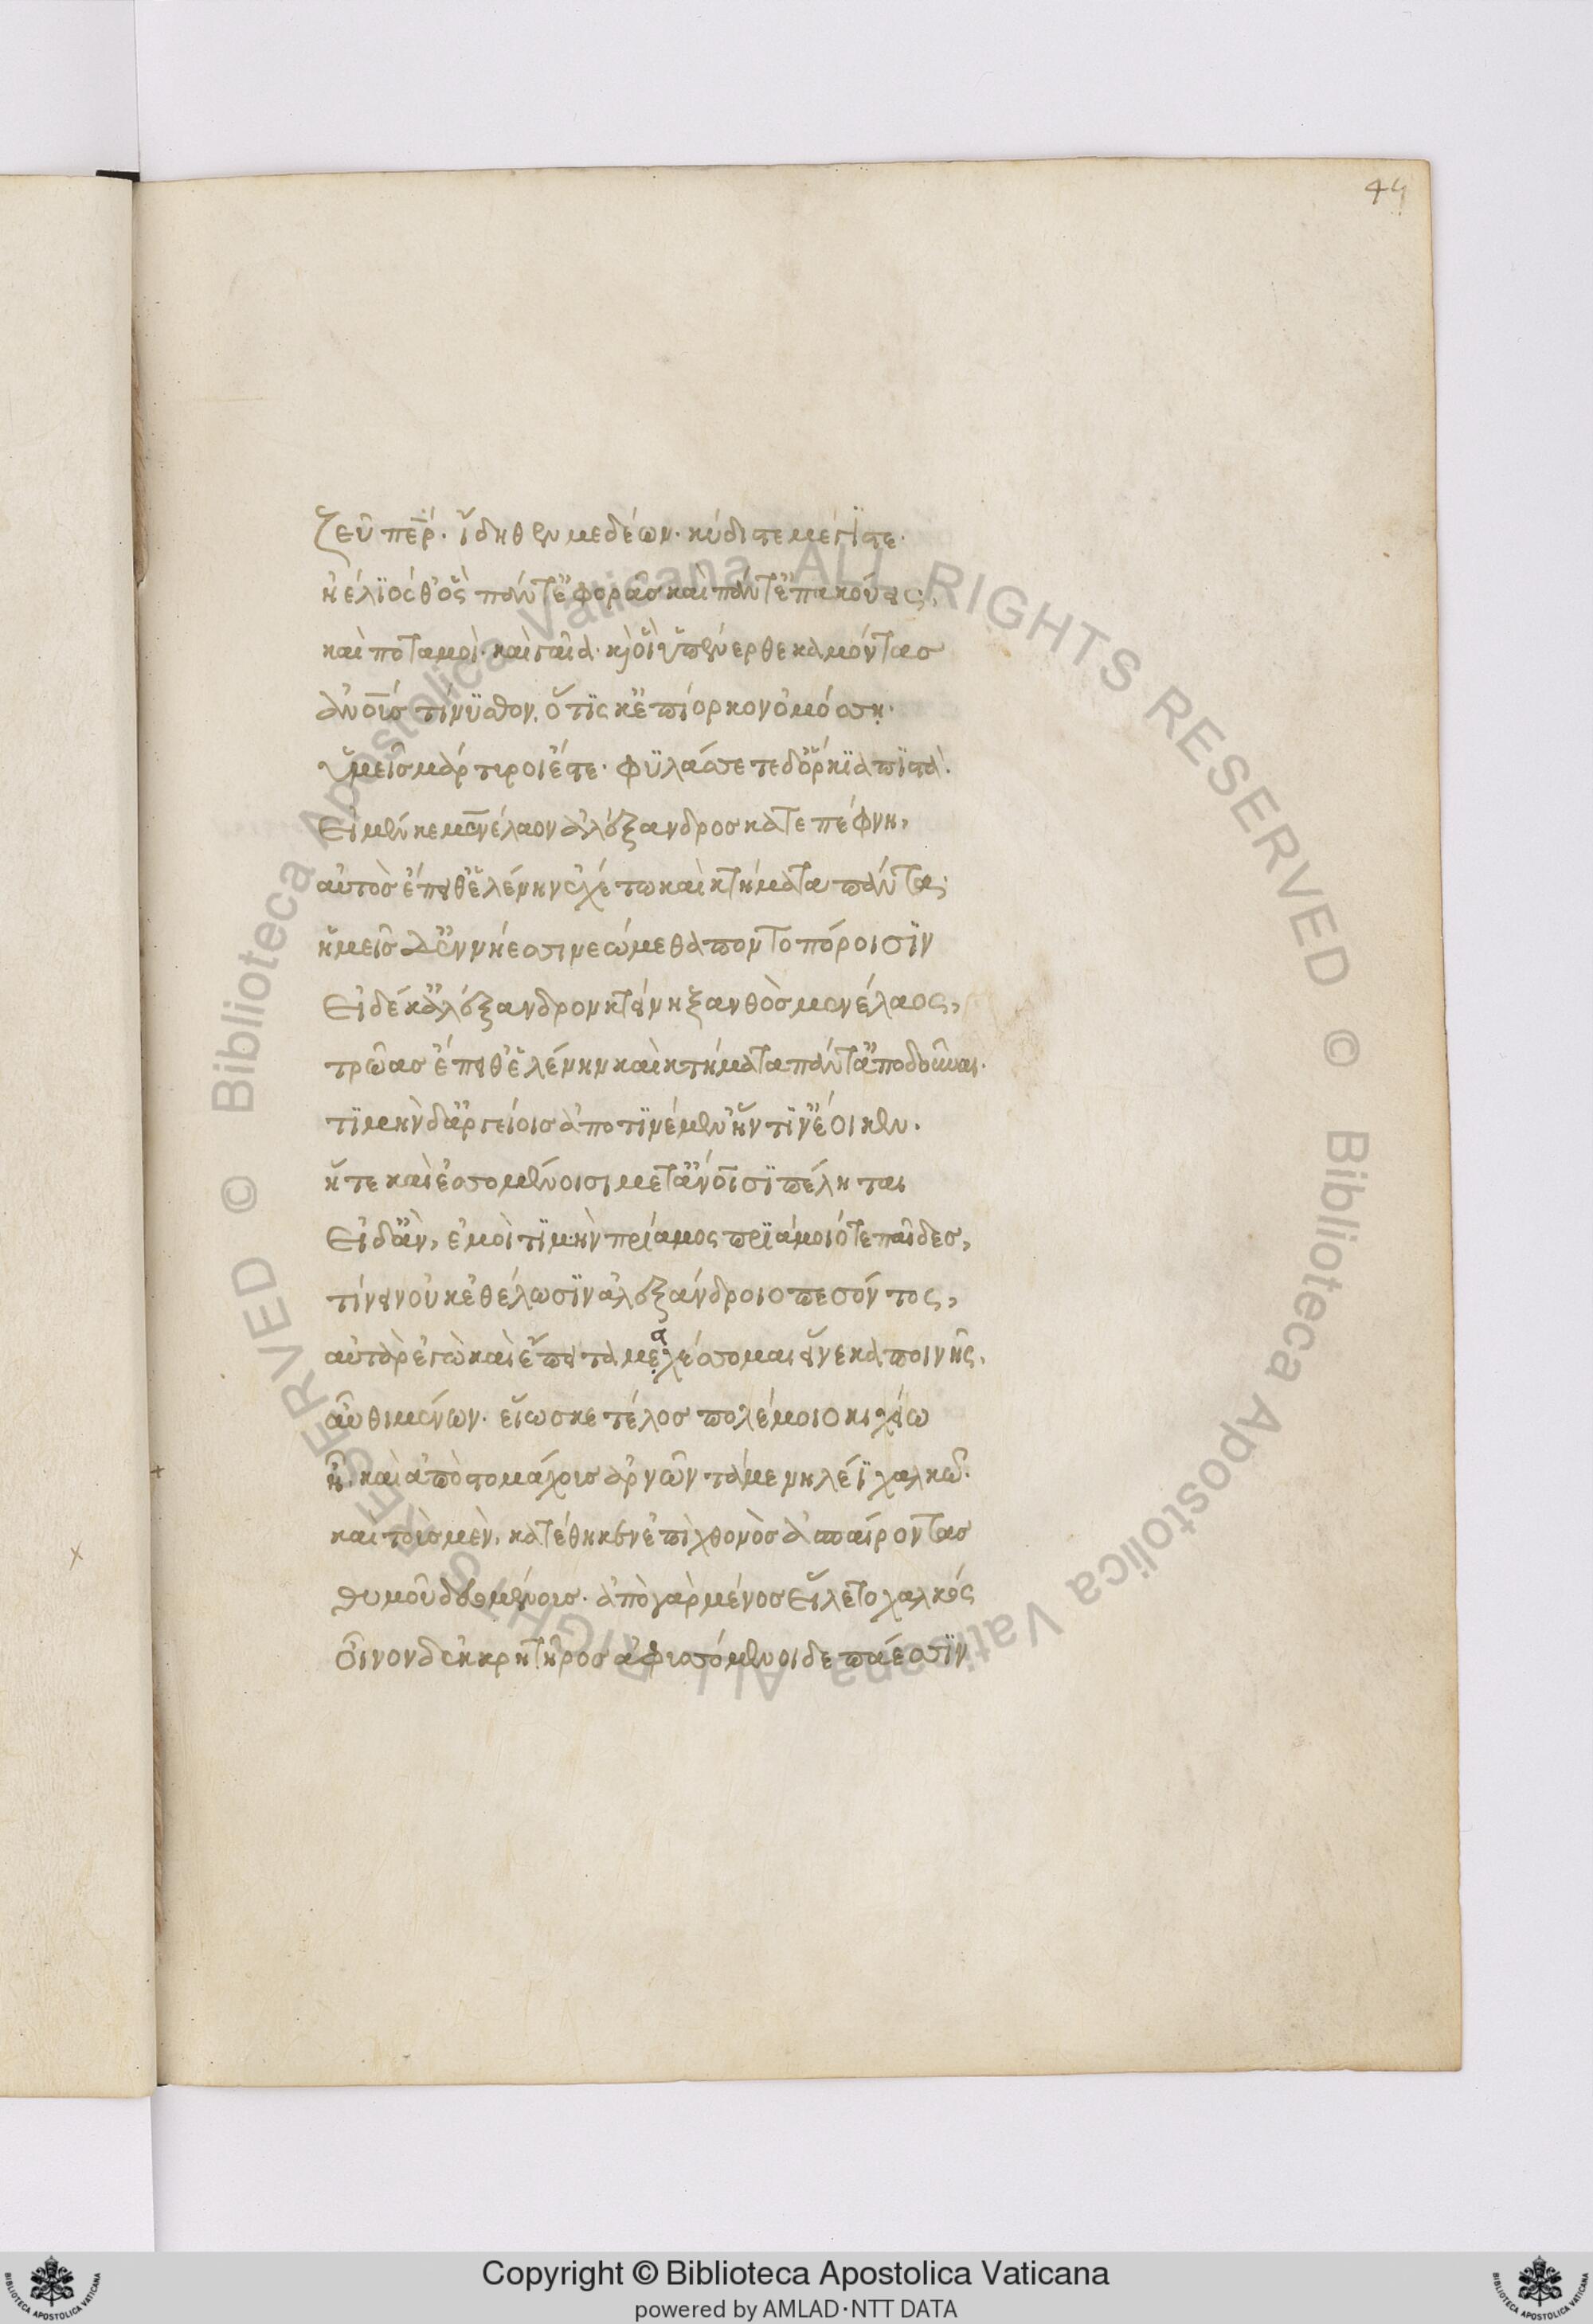 44
ζεῦ πε̅ρ́· ἴδηθεν μεδέων· κύδιστε μέγϊστε·
ἠέλϊός θ' ὃς πάντ' ἐφορᾶσ καὶ πάντ' ἐπακούεις,
καὶ ποταμοὶ· καὶ γαῖα· κ(αὶ) οἳ ὑπένερθε καμόντασ
ἀν̅ο̅υσ τίνϋσθον, ὅτϊς κ' ἐπίορκον ὀμόσση·
ὑμεῖσ μάρτυροι ἔστε· φϋλάσσετε δ' ὅρκϊα πϊστὰ.
εἰ μέν κε μενέλαον ἀλέξανδροσ καταπέφνη,
αὐτὸσ ἔπειθ' ἑλένην ἐχέτω καὶ κτήματα πάντα·
ἡμεῖσ δ' ἐν νήεσσι νεώμεθα ποντοπόροισϊν
εἰ δέ κ' ἀλέξανδρον κτείνη ξανθὸσ μενέλαος,
τρῶασ ἔπειθ' ἑλένην καὶ κτήματα πάντ' ἀποδοῦναι.
τϊμὴν δ' ἀργείοισ ἀποτϊνέμεν ἥν τϊν' ἔοικεν.
ἥ τε καὶ ἐσσομένοισι μετ' ἀν̅ο̅ισϊ πέληται
εἰ δ' ἂν, ἐμοὶ τϊμὴν πρίαμος πρϊάμοιό τε παῖδεσ,
τίνειν οὐκ ἐθέλωσϊν ἀλεξάνδροιο πεσόντος,
αὐτὰρ ἐγὼ καὶ ἔπειτα μαχέσσομαι εἵνεκα ποινῆς,
αὖθι μένων· εἵωσ κε τέλοσ πολέμοιο κιχείω
ἦ. καὶ ἀπὸ στομάχουσ ἀρνῶν τάμε νηλέϊ χαλκῶ·
καὶ τοὺσ μὲν, κατέθηκεν ἐπὶ χθονὸσ ἀσπαίροντασ
θυμοῦ δευομένουσ· ἀπὸ γὰρ μένοσ εἵλετο χαλκός
οἶνον δ' ἐκ κρητῆροσ ἀφυσσόμενοι δεπάεσσϊν
Copyright © Biblioteca Apostolica Vaticana
powered by AMLAD·NTT DATA
© Biblioteca Apostolica Vaticana ALL RIGHTS RESERVED
© Biblioteca Apostolica Vaticana ALL RIGHTS RESERVED